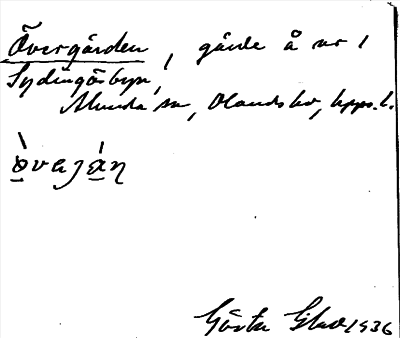 Övergården, gärde å nr 1
Sydingåsbyn,
Alunda sn, Olands hd, Upps. l.
Gösta 1936